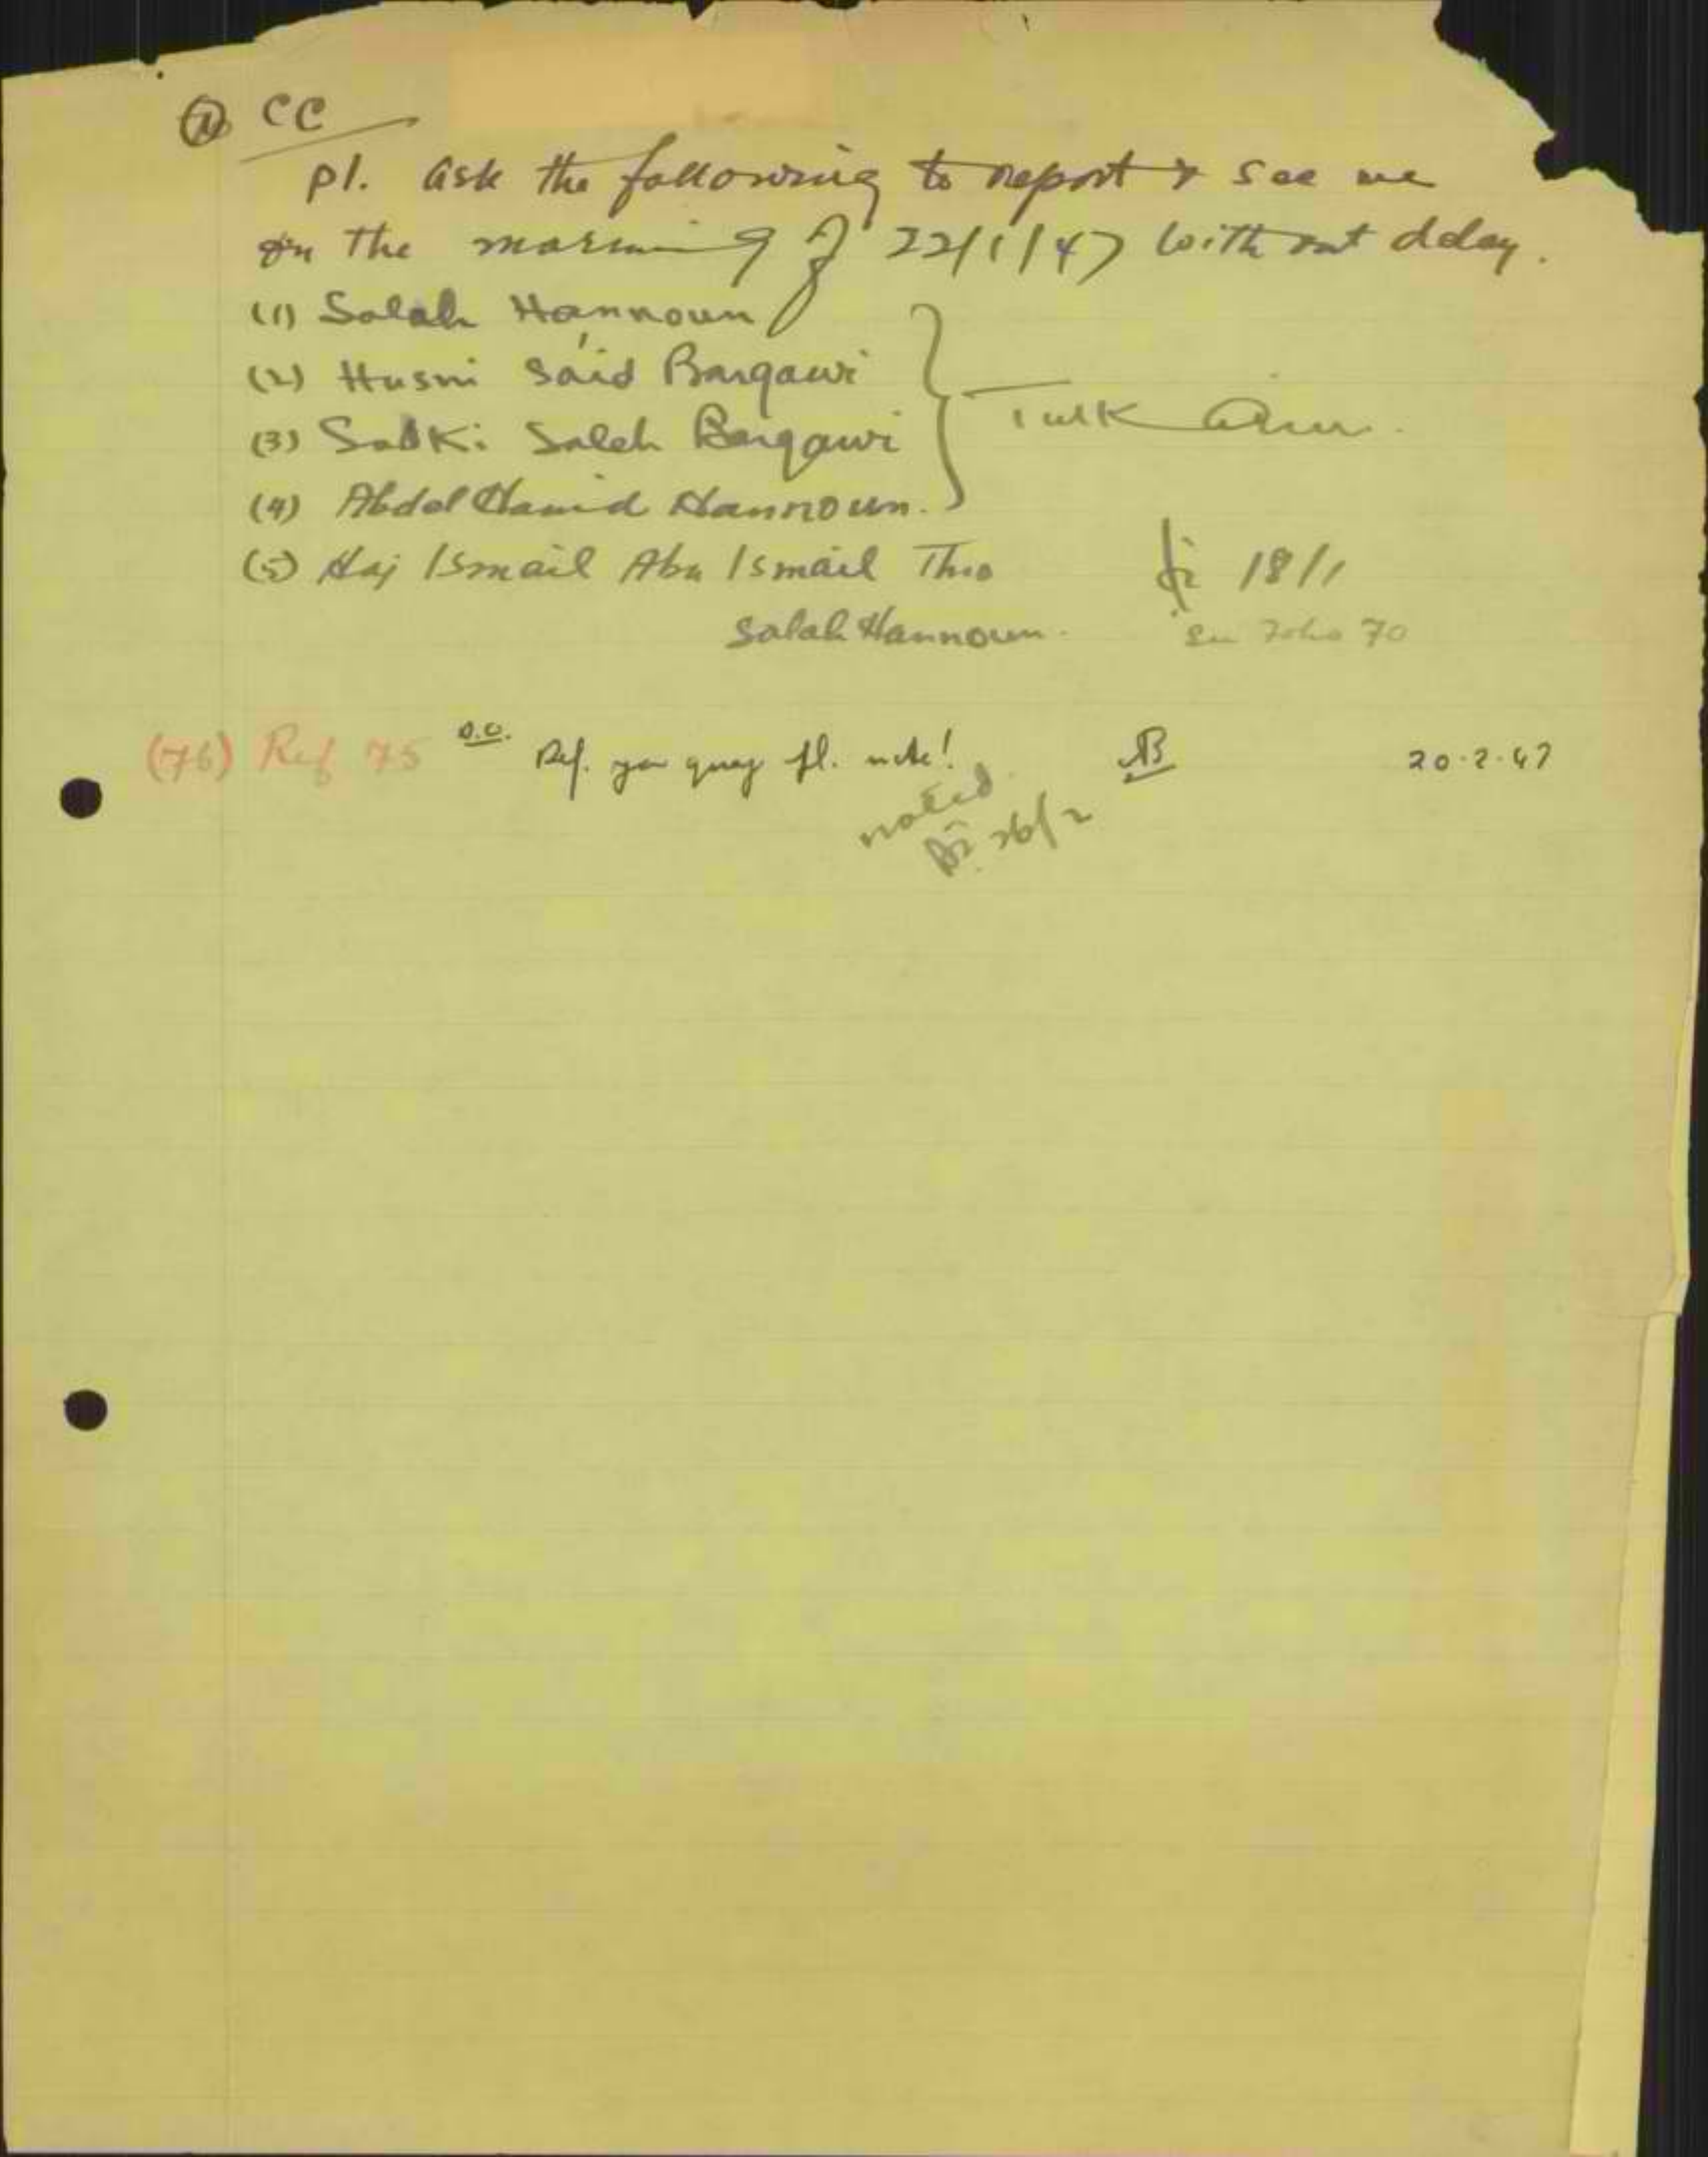 CC
pl. ask the following to report & see me
on the morning of 22/1/47 without delay.
(1) Salah Hannoun
(2) Husni Said Barqawi
(3) Sabki Saleh Barqawi
Tulk Arm.
(4) Abdel Hamid Hannoun.
(5) Haj Ismail Abu Ismail Thro
18/1
Salah Hannoun.
See Folio 70
(76) Ref 75 D.O. Ref. your query pl. note! 20.2.47
noted
26/2